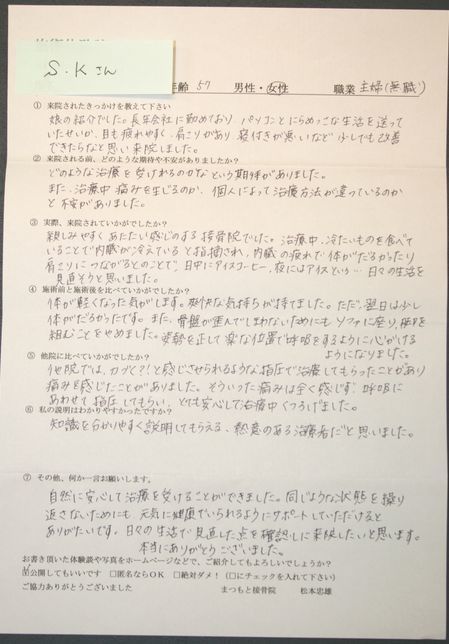 S.Kさん
年齢 57 男性・女性 職業 主婦(無職)
① 来院されたきっかけを教えて下さい
娘の紹介でした。長年会社に勤めており パソコンとにらめっこな生活を送って
いたせいか、目も疲れやすく、肩こりがあり 寝付きが悪いなど 少しでも改善
できたらなと思い来院しました。
② 来院される前、どのような期待や不安がありましたか?
どのような治療を受けれるのかなという期待がありました。
また、治療中痛みを生じるのか、個人によって治療方法が違っているのか
と不安がありました。
③ 実際、来院されていかがでしたか?
親しみやすくあたたかい感じのする接骨院でした。治療中、冷たいものを食べて
いることで内臓が冷えていると指摘され、内臓の疲れで体がだるかったり
肩こりにつながるとのことで、日中にアイスコーヒー、夜にはアイスという… 日々の生活を
見直そうと思いました。
④ 施術前と施術後を比べていかがでしたか?
体が軽くなった気がします。爽快な気持ちが持てました。ただ、翌日は少し
体がだるかったです。また、骨盤が歪んでしまわないためにもソファに座り、脚を
組むことをやめました。姿勢を正して楽な位置で呼吸をするように心がける
ようになりました。
⑤ 他院に比べていかがでしたか?
他院では、カづく?!と感じさせられるような指圧で治療してもらったことがあり
痛みを感じたことがありました。そういった痛みは全く感じず、呼吸に
あわせて指圧してもらい、とても安心して治療中くつろげました。
⑥ 私の説明はわかりやすかったですか?
知識を分かりやすく説明してもらえる、熱意のある治療者だと思いました。
⑦ その他、何か一言お願いします。
自然に安心して治療を受けることができました。同じような状態を繰り
返さないためにも、元気に健康でいられるようにサポートしていただけると
ありがたいです。日々の生活で見直した点を確認しに来院したいと思います。
本当にありがとうございました。
お書き頂いた体験談や写真をホームページなどで、ご紹介してもよろしいでしょうか?
☑公開してもいいです □匿名ならOK □絶対ダメ! (□にチェックを入れて下さい)
ご協力ありがとうございました まつもと接骨院 松本忠雄